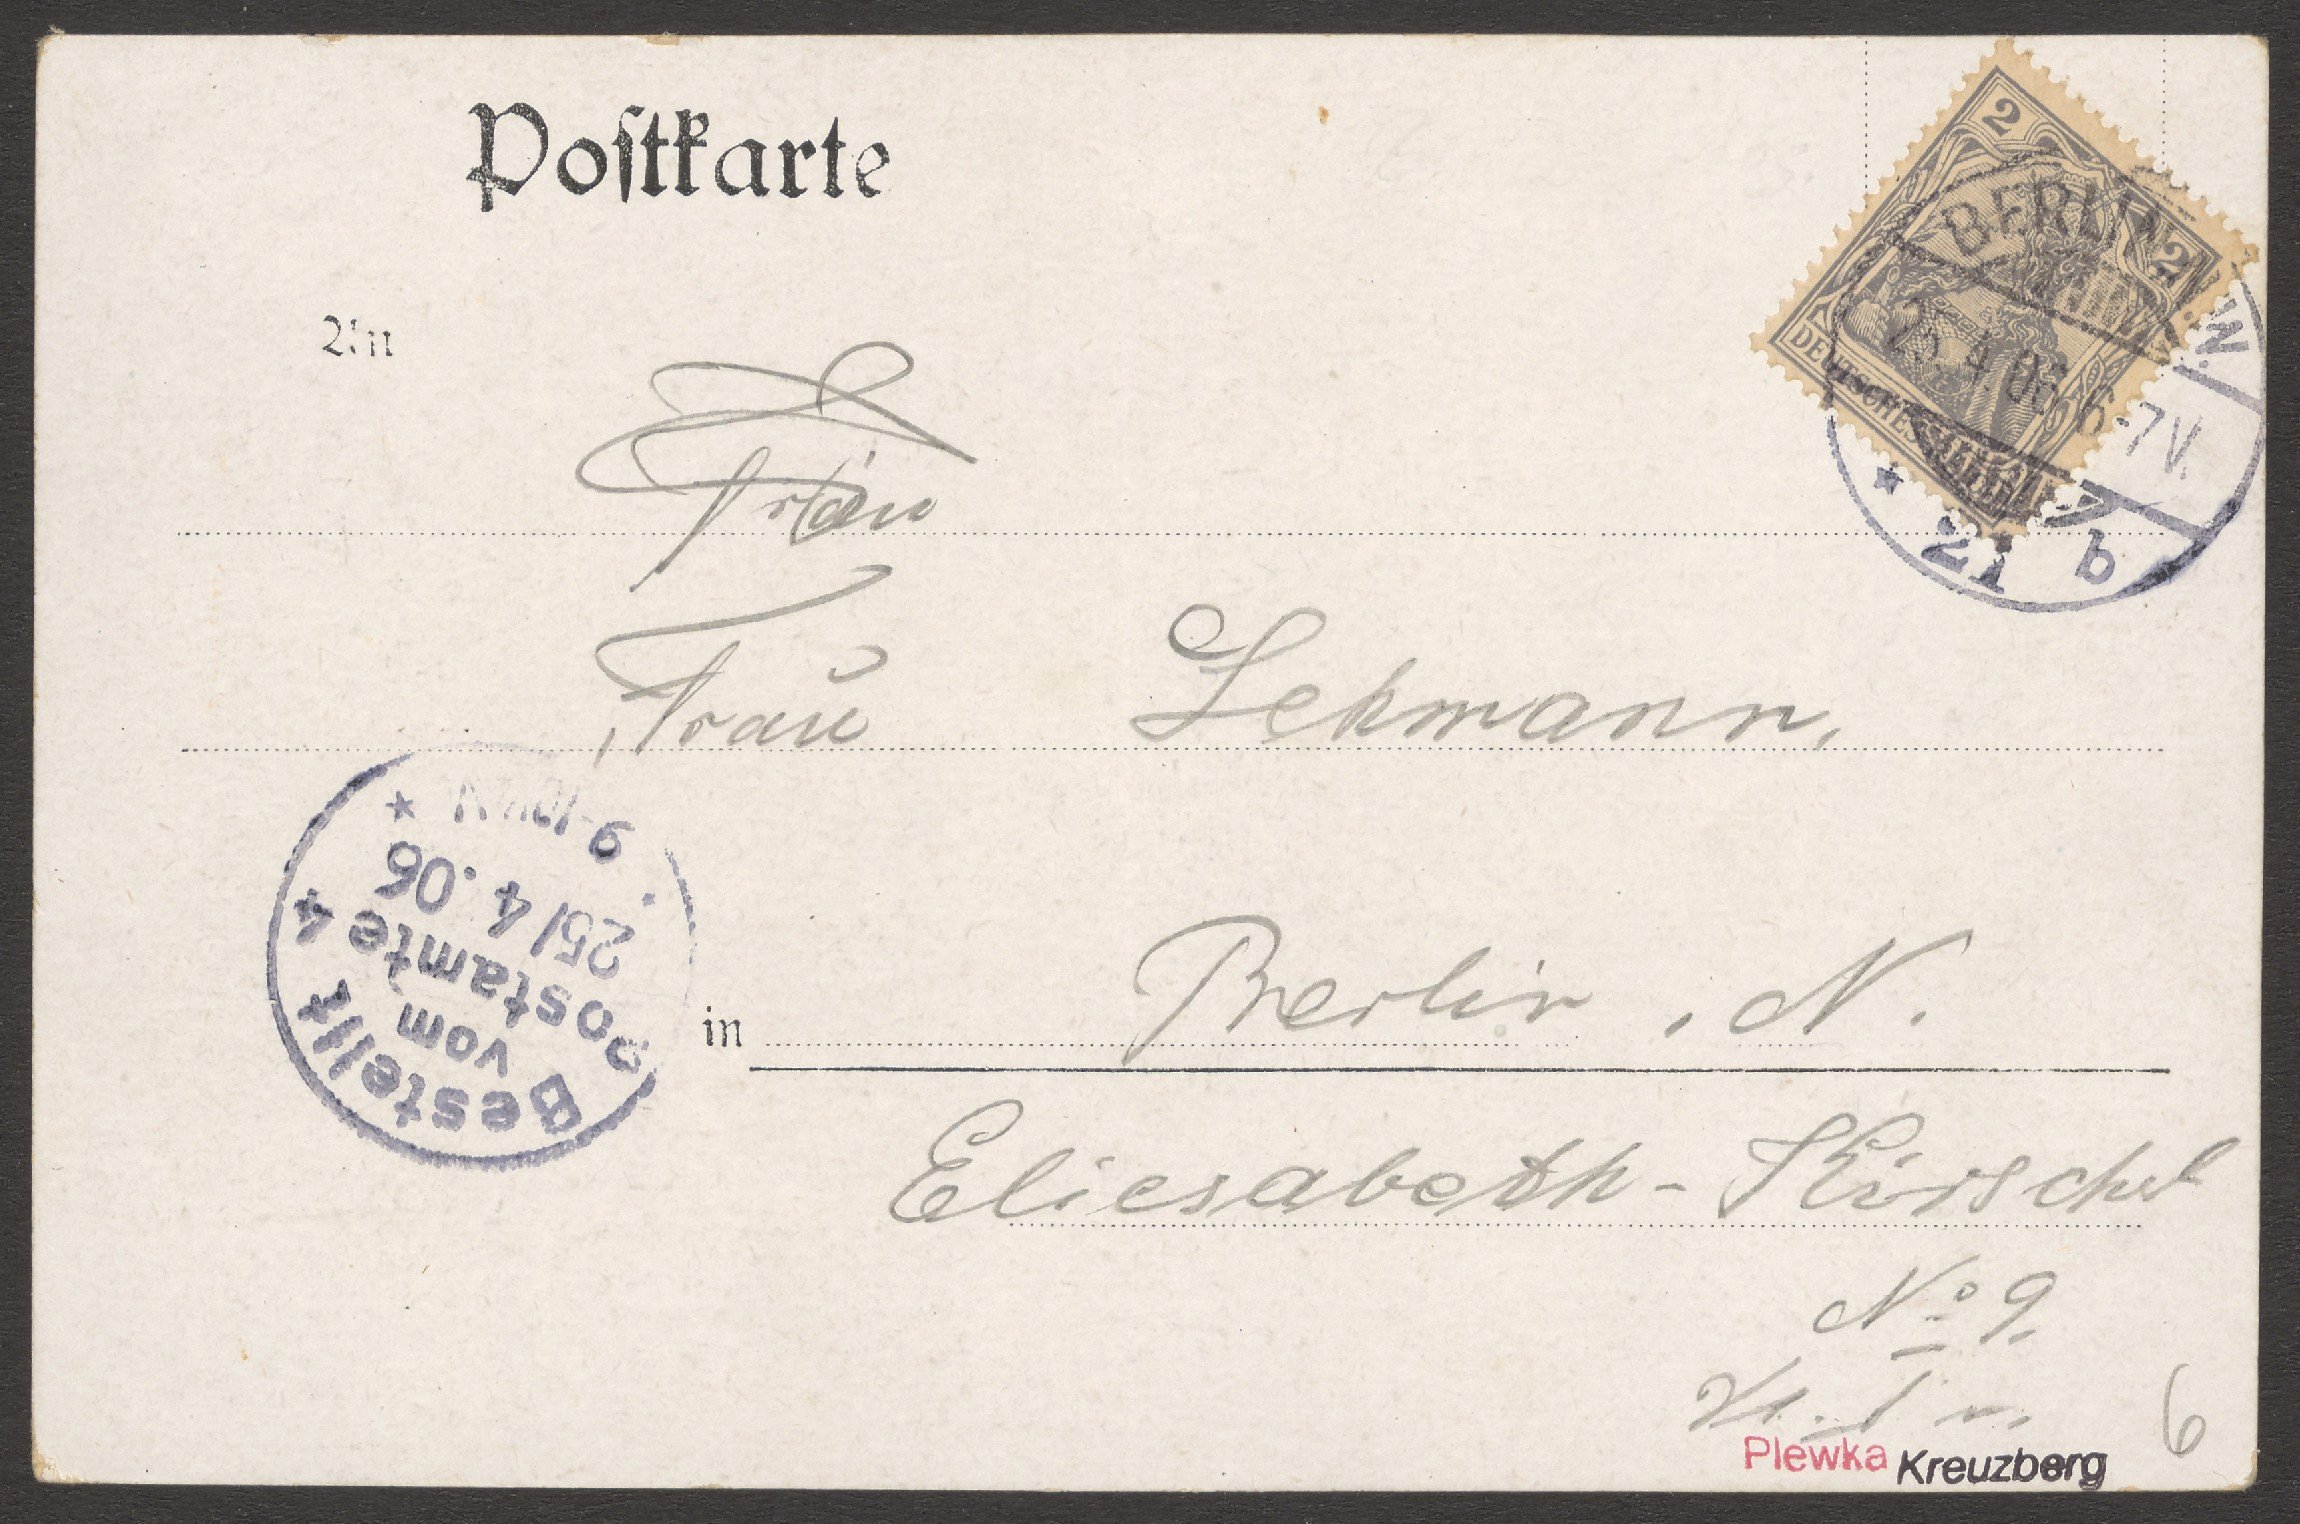 Postkarte
2
2
DEUTSCHES REICH
BERLIN N.W.
25.4.06 6-7V.
* 21 b
An
Frau
Frau Lehmann.
Bestellt
vom
Postamte 4
25/4.06
9-10
*
in Berlin, N.
Eliesabeth-Kirschst
No 9.
Plewka Kreuzberg
6